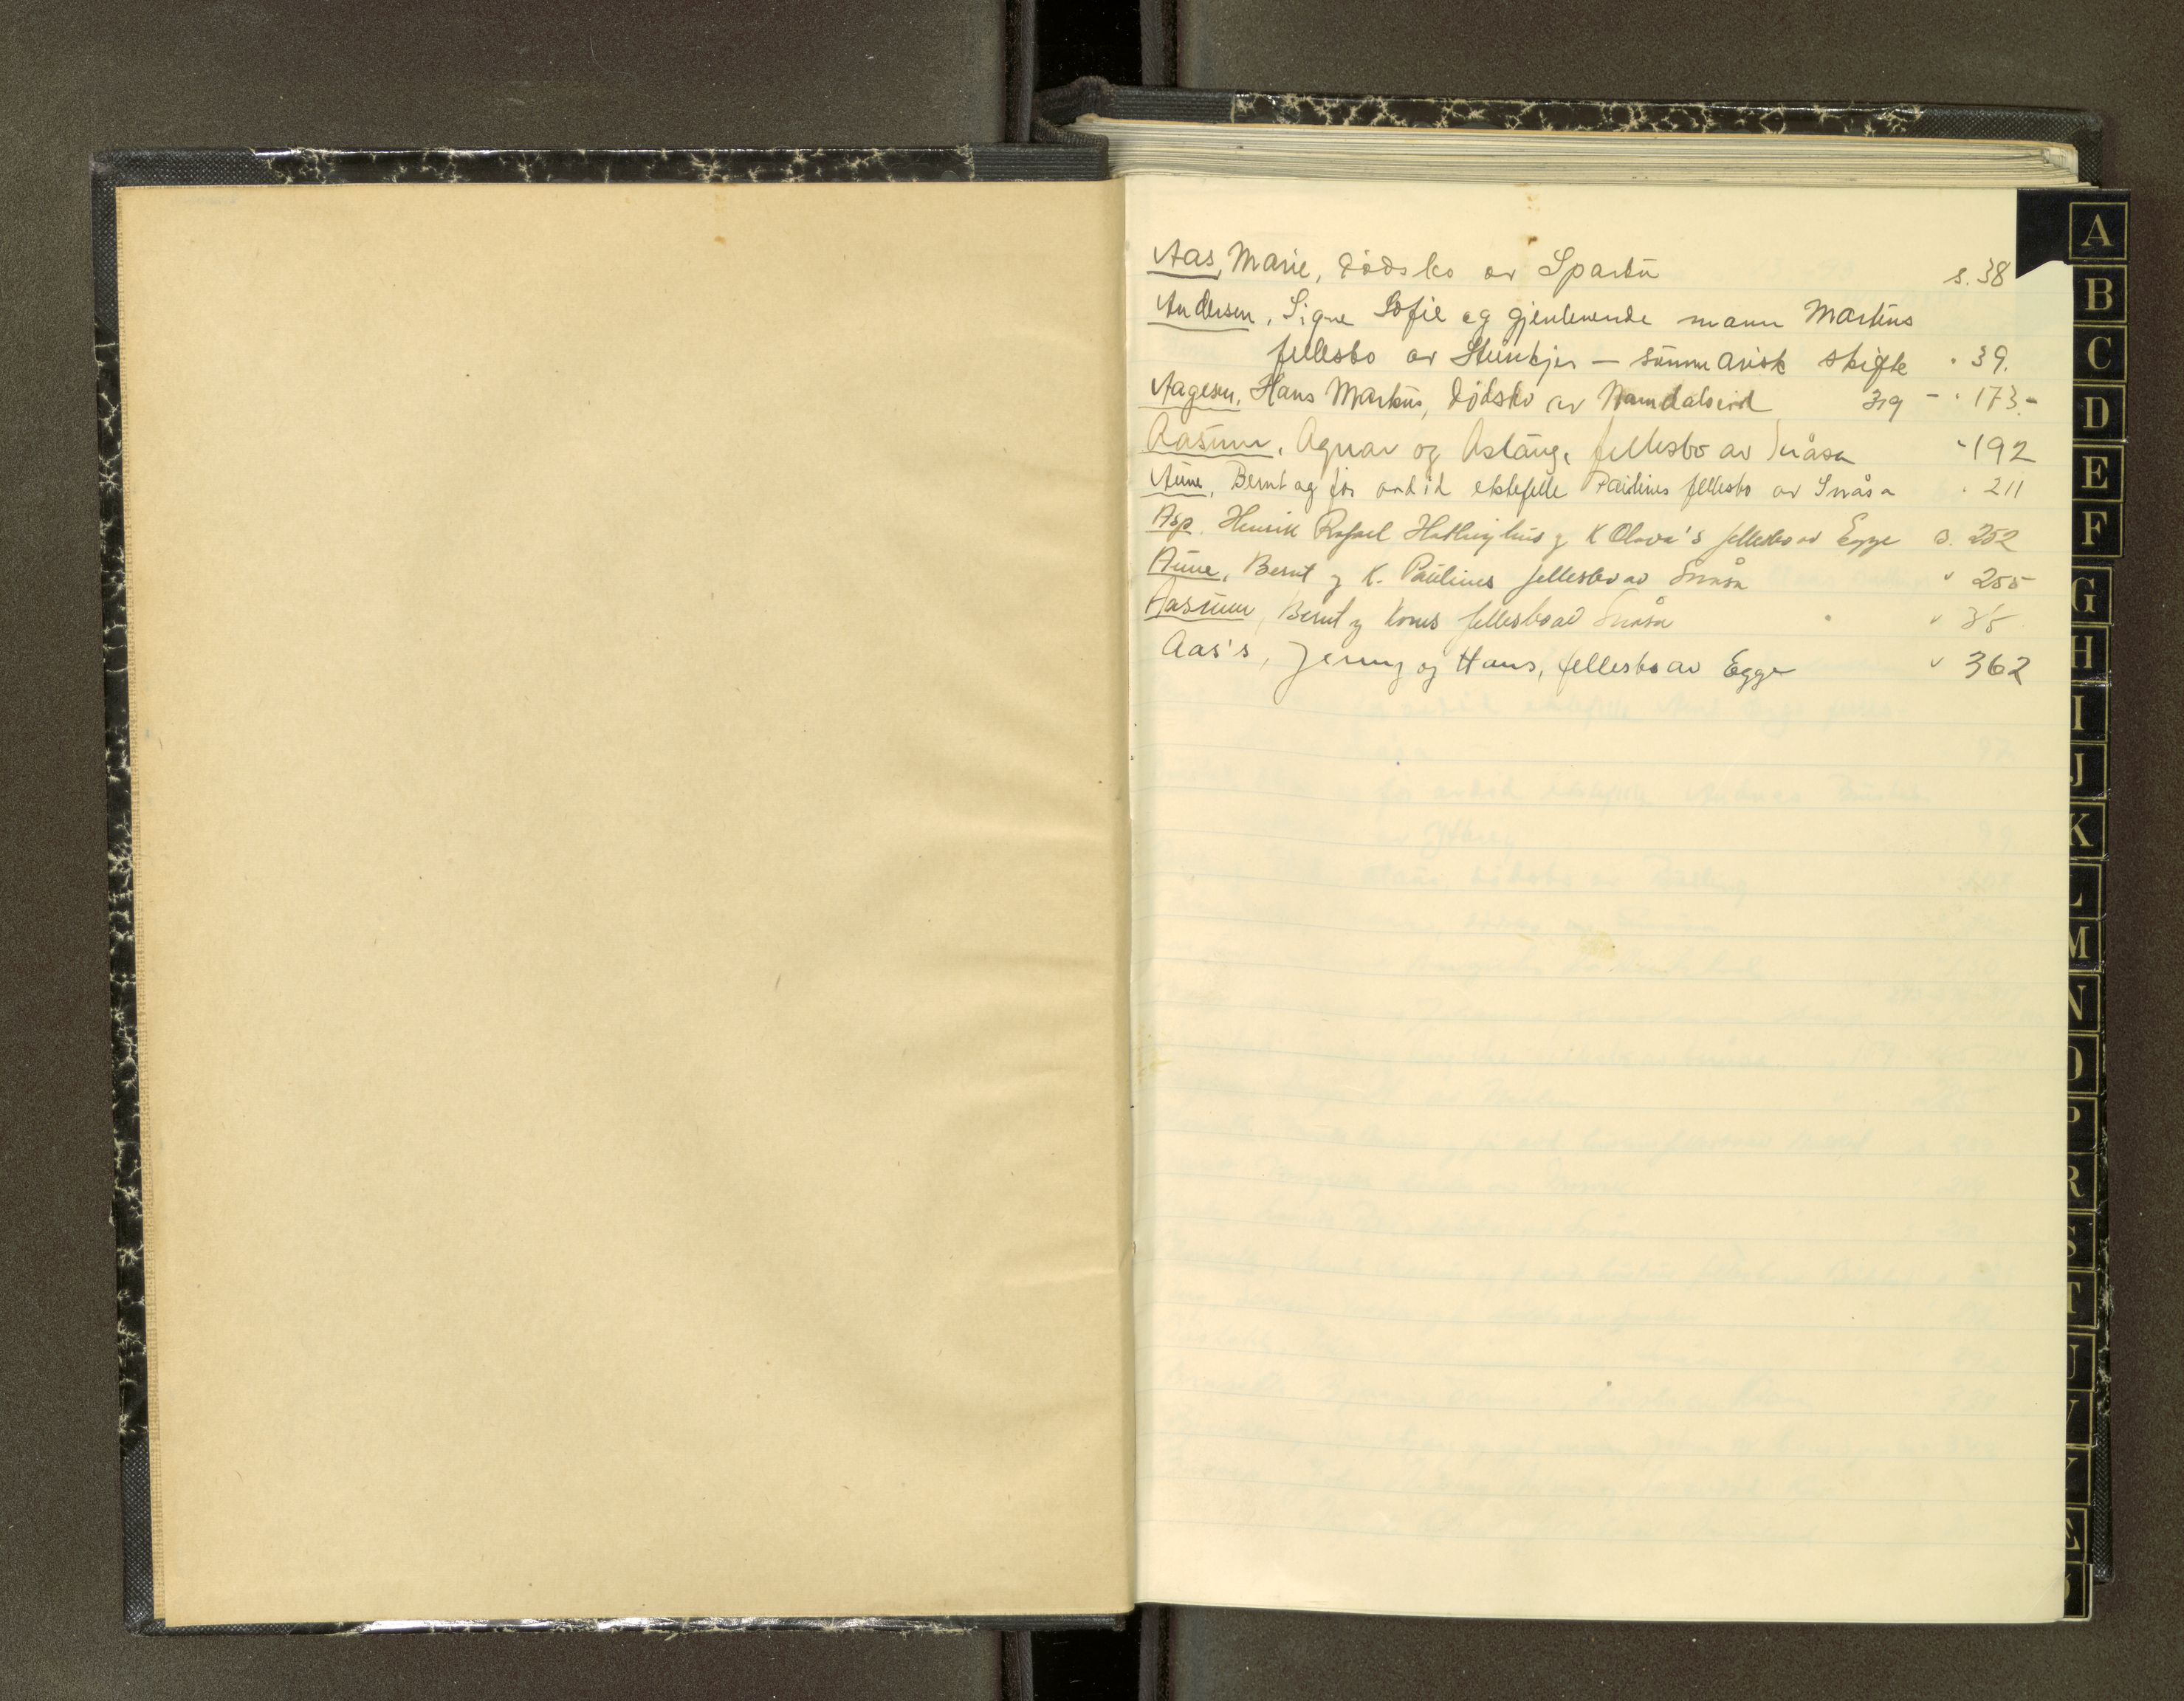 Aas, Marie, dødsbo av Sparbu s. 38
Andersen, Signe Sofie og gjenlevende mann Martins
fellesbo av Steinkjer — summarisk skifte " 39.
Aagesen, Hans Martin, dødsbo av Namdalseid 319 - " 173.-
Aasum, Agnar og Aslaug, fellesbo av Snåsa " 192
Aune, Bernt og før avd id ektefelle Paulines fellesbo av Snåsa " 211
Asp, Henrik Rafael og k Olava's fellesbo av Egge s. 252
Aune, Bernt og k. Paulines fellesbo av Snåsa " 255
Aasum, Bernt og kones fellesbo av Snåsa "
Aas's, Jenny og Hans, fellesbo av Egge " 362
A
B
C
D
E
F
G
H
I
J
K
L
M
N
O
P
R
S
T
U
V
Y
Æ
Ø